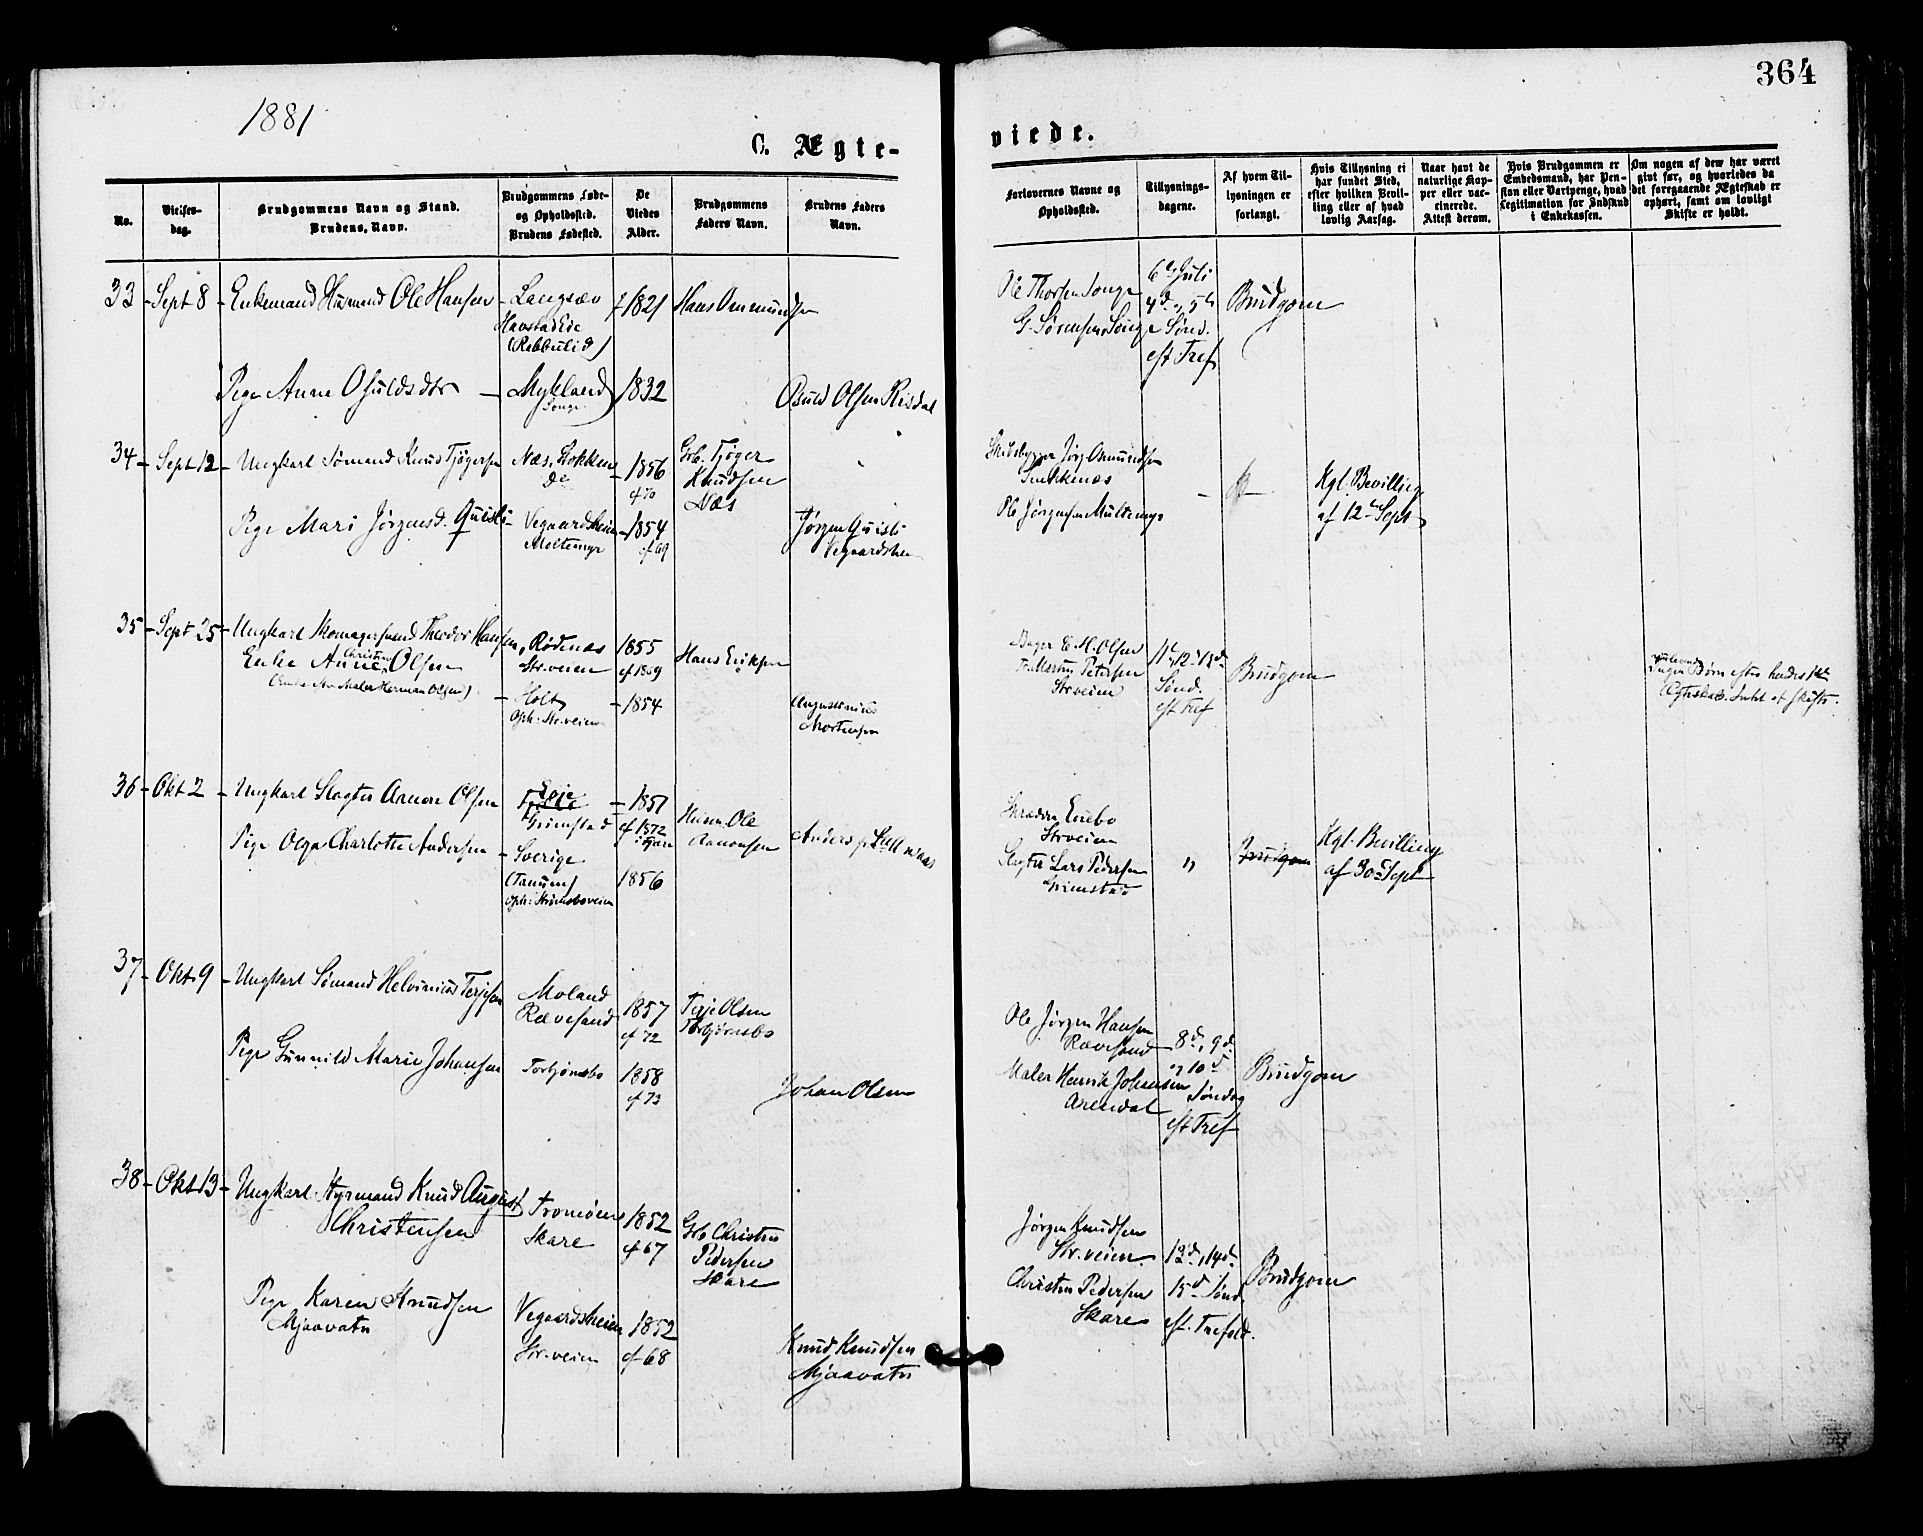 1881
364
C. Ægte-
viede.
No.
Vielses-
dag.
Brudgommens Navn og Stand.
Brudens Navn.
Brudgommens Føde-
og Opholdssted.
Brudens Fødested.
De
Viedes
Alder.
Brudgommens
Faders Navn.
Brudens Faders
Navn.
Forlovernes Navne og
Opholdssted.
Tillysnings-
dagene.
Af hvem Til-
lysningen er
forlangt.
Hvis Tillysning ei
har fundet Sted,
efter hvilken Bevil-
ling eller af hvad
lovlig Aarsag.
Naar havt de
naturlige Kop-
per eller vac-
cinerede.
Attest derom.
Hvis Brudgommen er
Embedsmand, har Pen-
sion eller Vartpenge, hvad
Legitimation for Indskud
i Enkekassen.
Om nogen af dem har været
gift før, og hvorledes da
det foregaaende Ægteskab er
ophørt, samt om lovligt
Skifte er holdt.
33 - Sept 8 - Enkemand Husmand Ole Hansen - Langsæv f 1821 Hans Ommundsen
Havstad Eie
Pige Anne Osuldsdtr - Mykland 1832 Osuld Olsen Risdal
Songe
Ole Thorsen Songe
G. Sørensen Songe
6te Juli
4d. 5te
Sønd.
eft Tref
Brudgom
34 - Sept 12 - Ungkarl Sømand Knud Tjøgersen Næs, 1856 Grb. Tjøger
Knudsen
Næs
cf 70
Pige Mari Jørgensd. Quisli - Vegaardsheien - 1854 Jørgen Quisli
Moltemyr cf 69 Vegaardsheien
Jørg. Osmundsen
Ole Jørgensen Multemyr
Kgl. Bevilling
af 12te Sept
35 - Sept 25 - Ungkarl Skomagersvend Theodor Hansen, Rødenæs 1855 Hans Eriksen
Enke Anne Christine Olsen Str.veien cf 1869
(Enke efter Maler Herman Olsen)
- Holt - 1854
Oph: Str.veien Mortensen
Bager C. H. Olsen
Martin Petersen
Strveien
11te 12te 13d.
Sønd.
eft Tref
Brudgom
Ingen Børn efter hendes 1ste
Ægteskab. Intet at skifte.
36 - Okt 2 - Ungkarl Slagter Aanon Olsen - 1851 Husm. Ole
Aanonsen
Grimstad cf 1872
Pige Olga Charlotte Andersen - Sverige
(Tanum) 1856
Oph: Strømsbveien
Strveien
Slagter Lars Pedersen
Grimstad
"
Brudgom
Kgl. Bevilling
af 30te Sept
37 - Okt 9 - Ungkarl Sømand Helvinius Terjesen Moland 1857 Terje Olsen
Rævesand cf 72 Torbjørnsbo
Pige Gunnild Marie Johansen Torbjørnsbo 1858
cf 73 Johan Olsen
Ole Jørgen Hansen
Rævesand
Maler Henrik Johansen
Arendal
8d, 9d.
og 10d
Søndag
eft Tref
Brudgom
38 - Okt 13 - Ungkarl Styrmand Knud August Tromøen 1852 Grb Christen
Christensen Skare cf 67 Pedersen
Skare
Pige Karen Knudsen Vegaardsheien 1852 Knud Knudsen
Mjaavatn Str.veien cf 68 Mjaavatn
Jørgen Knudsen
Str.veien
Christen Pedersen
Skare
13d, 14d.
15d Sønd.
eft. Trefold.
Brudgom